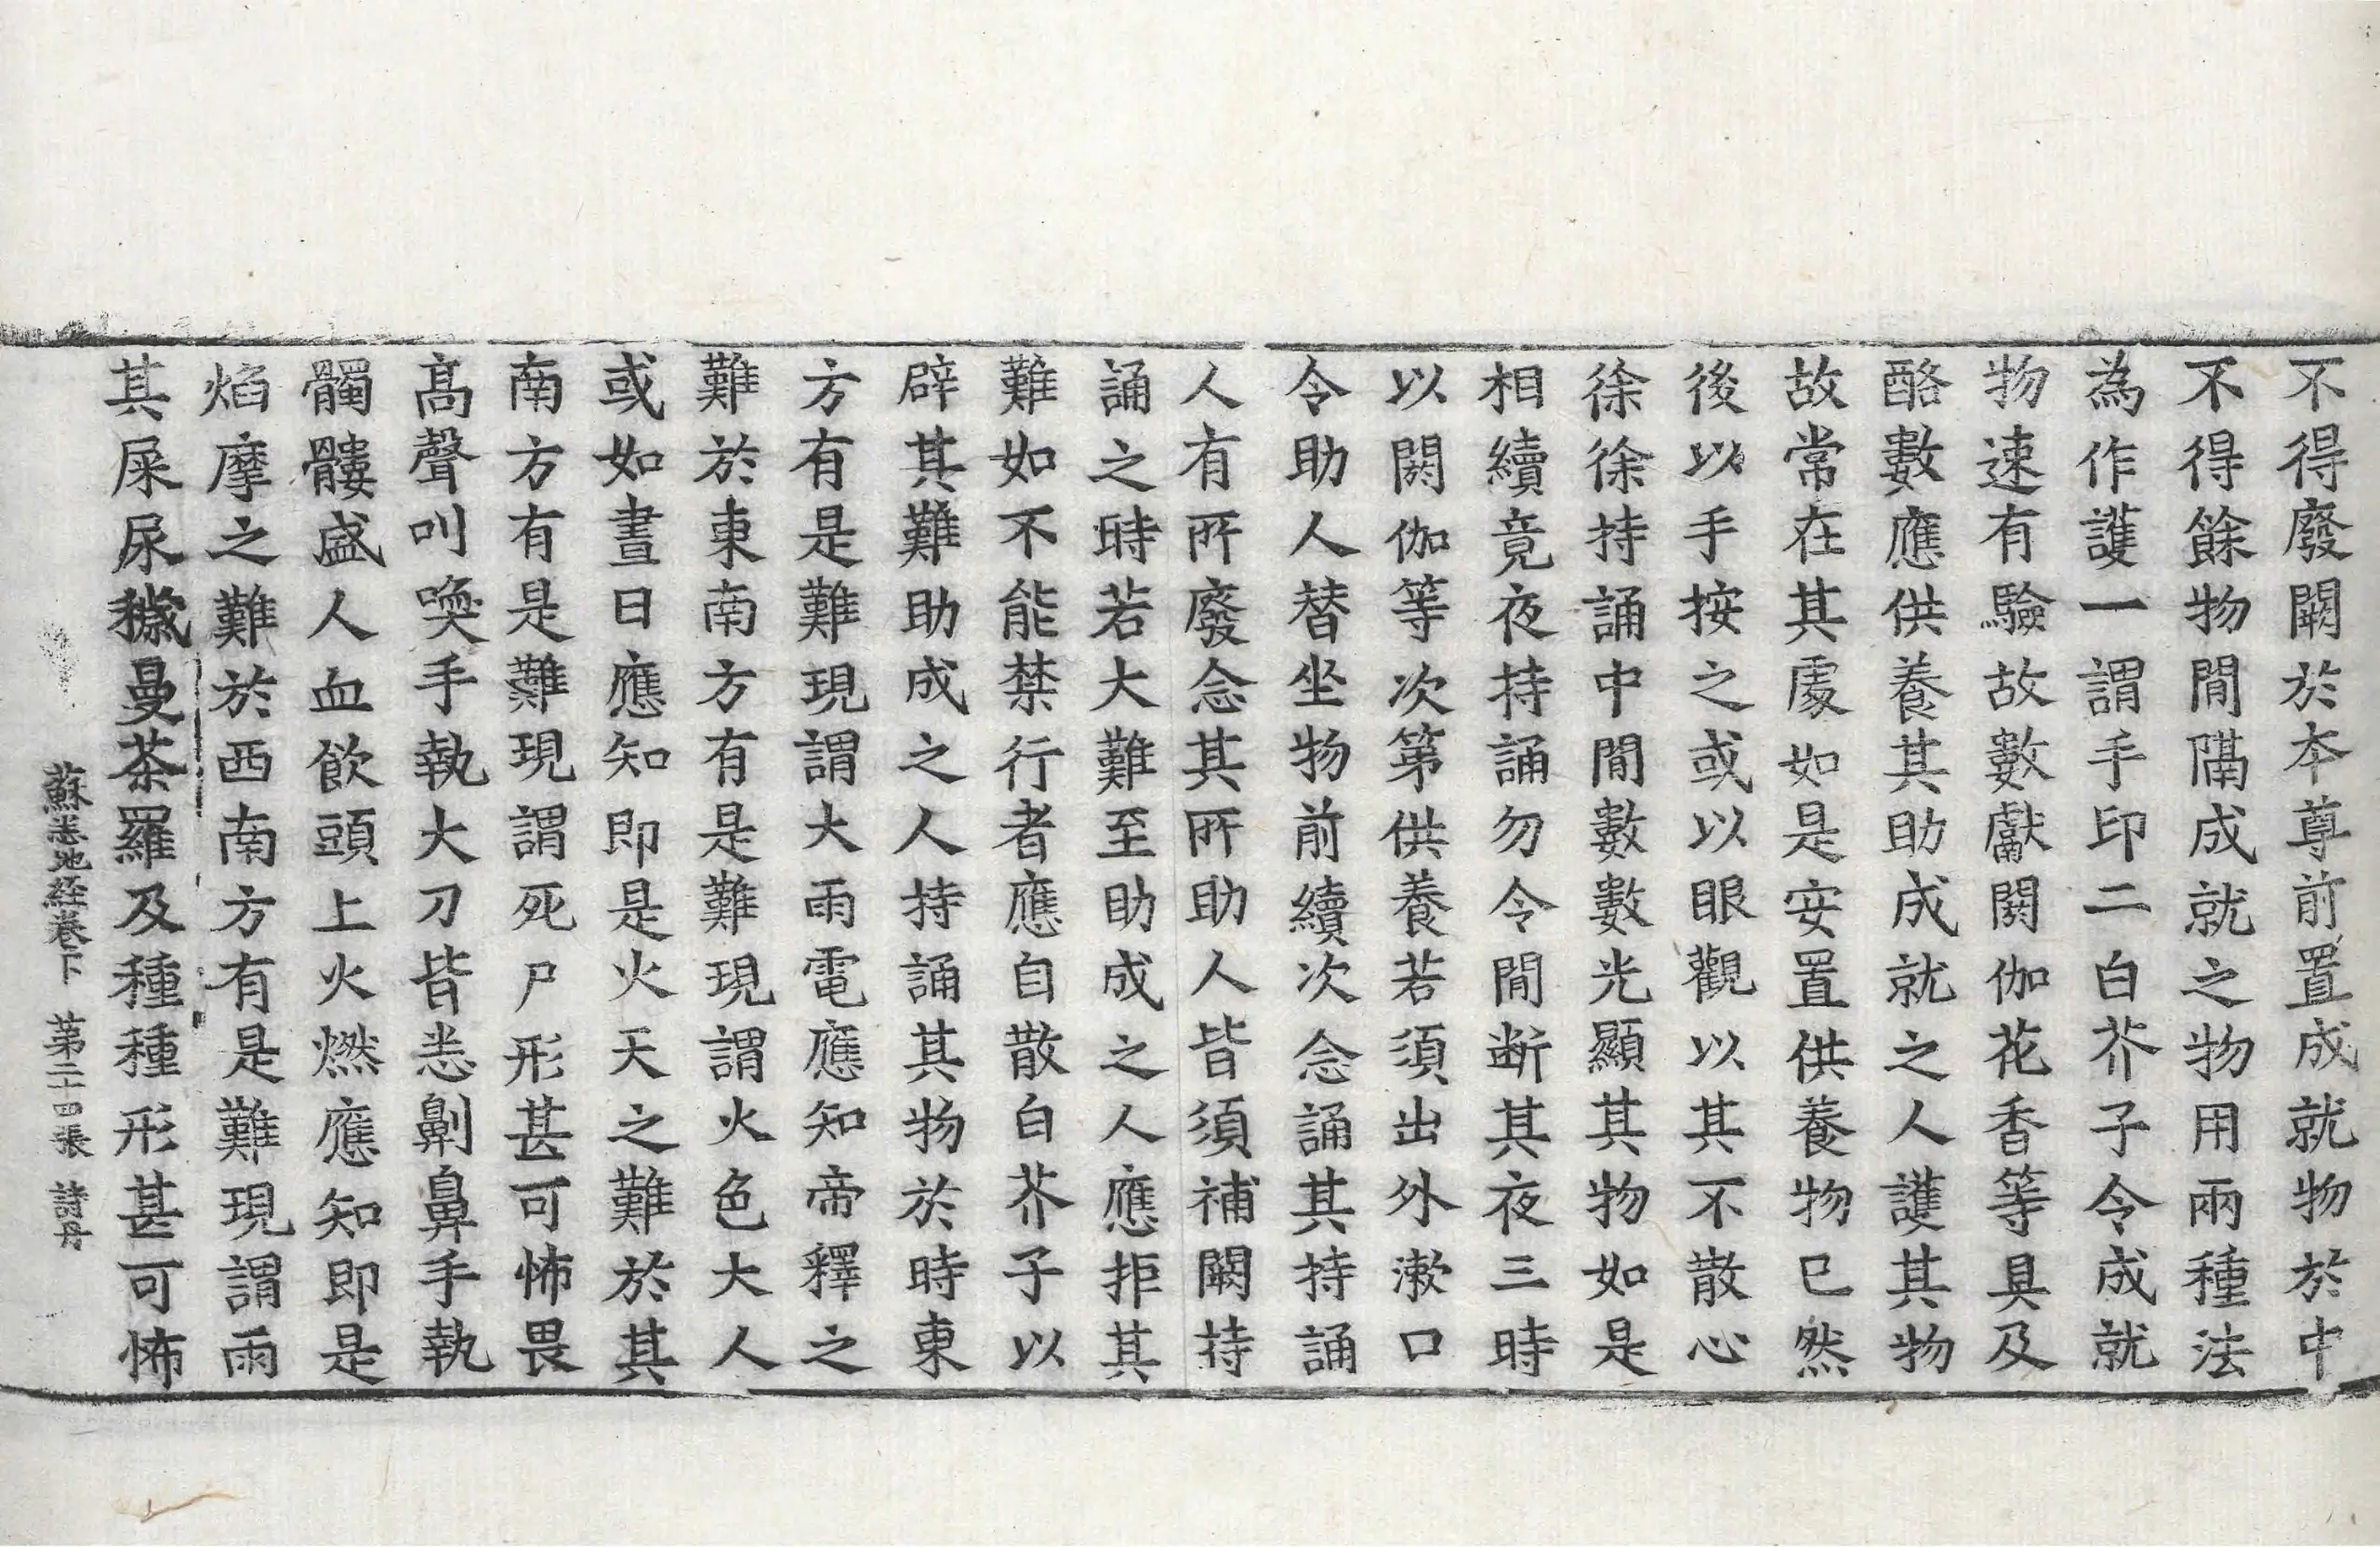 不得廢闕於本尊前置成就物於中
不得餘物間隔成就之物用兩種法
為作護一謂手印二白芥子令成就
物速有驗故數獻閼伽花香等具及
酪數應供養其助成就之人護其物
故常在其處如是安置供養物已然
後以手按之或以眼觀以其不散心
徐徐持誦中閒數數光顯其物如是
相續竟夜持誦勿令閒断其夜三時
以閼伽等次第供養若須出外漱口
令助人替坐物前續次念誦其持誦
人有所廢念其所助人皆須補闕持
誦之時若大難至助成之人應拒其
難如不能禁行者應自散白芥子以
辟其難助成之人持誦其物於時東
方有是難現謂大雨電應知帝釋之
難於東南方有是難現謂火色大人
或如晝日應知即是火天之難於其
南方有是難現謂死尸形甚可怖畏
髙聲叫喚手執大刀皆悉劓鼻手執
髑髏盛人血飲頭上火燃應知即是
焰摩之難於西南方有是難現謂雨
其屎尿穢曼荼羅及種種形甚可怖
蘇悉地経卷下 第二十四張 詩丹